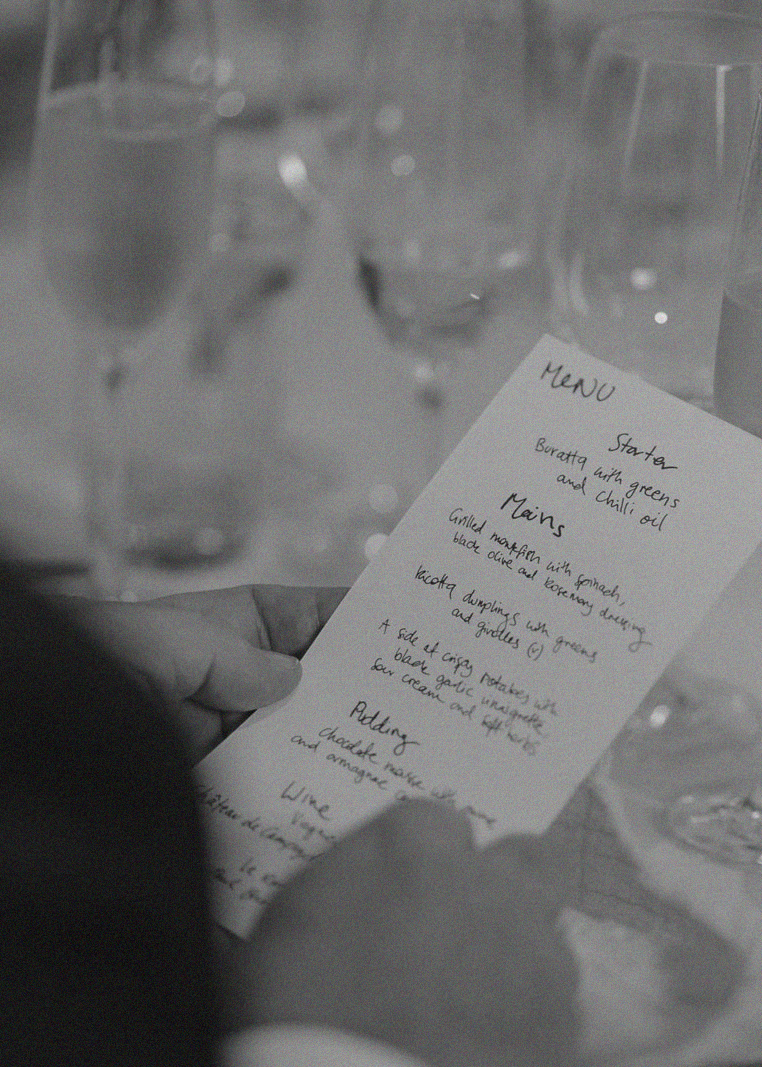 MENU
Starter
Buratta with greens
and chilli oil
Mains
Grilled monkfish with spinach,
black olive and rosemary dressing
Ricotta dumplings with greens
and girolles (v)
A side of crispy potatoes with
black garlic vinaigrette,
sour cream and soft herbs
Pudding
chocolate mousse with
and armagnac
Wine
Château de
and